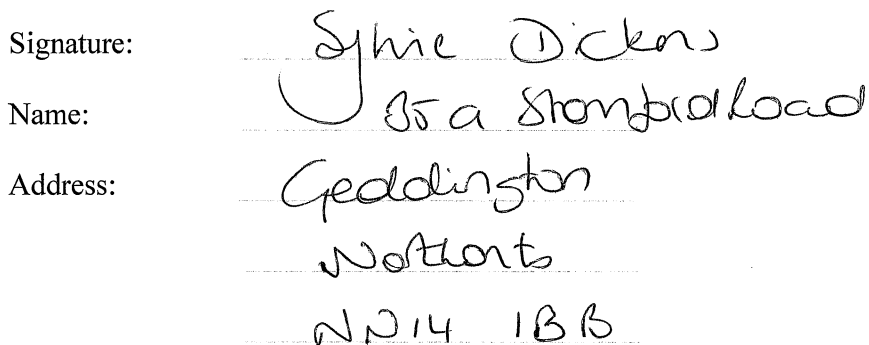 Signature: Sylvie Dickens
Name: 35a Stamford Road
Address: Geddington
Northants
NN14 1BB